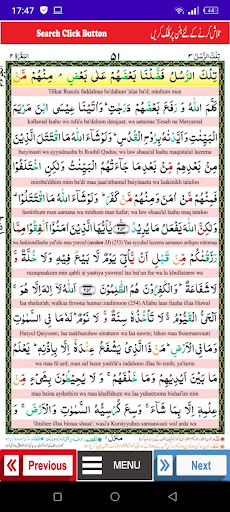 17:47
Search Click Button
تلاش کرنے کے لئے بٹن پر کلک کریں
تِلْكَ الرُّسُلُ ٣
٥١
الْبَقَرَة ٢
تِلْكَ الرُّسُلُ فَضَّلْنَا بَعْضَهُمْ عَلٰى بَعْضٍ ۘ مِنْهُمْ مَّنْ
Tilkar Rusulu faddalnaa ba'dahum 'alaa ba'd; minhum man
كَلَّمَ اللّٰهُ وَرَفَعَ بَعْضَهُمْ دَرَجٰتٍ ؕ وَاٰتَيْنَا عِيْسَى ابْنَ مَرْيَمَ
kallamal laahu wa rafa'a ba'dahum darajaat; wa aatainaa 'Eesab na Maryamal
الْبَيِّنٰتِ وَاَيَّدْنٰهُ بِرُوْحِ الْقُدُسِ ؕ وَلَوْ شَآءَ اللّٰهُ مَا اقْتَتَلَ الَّذِيْنَ
baiyinaati wa ayyadnaahu bi Roohil Qudus; wa law shaaa'al laahu maqtatalal lazeena
مِنْۢ بَعْدِهِمْ مِّنْۢ بَعْدِ مَا جَآءَتْهُمُ الْبَيِّنٰتُ وَلٰكِنِ اخْتَلَفُوْا
mim ba'dihim mim ba'di maa jaaa'athumul baiyinaatu wa laakinikh talafoo
فَمِنْهُمْ مَّنْ اٰمَنَ وَمِنْهُمْ مَّنْ كَفَرَ ؕ وَلَوْ شَآءَ اللّٰهُ مَا اقْتَتَلُوْا
faminhum man aamana wa minhum man kafar; wa law shaaa'al laahu maqtataloo
وَلٰكِنَّ اللّٰهَ يَفْعَلُ مَا يُرِيْدُ يٰۤاَيُّهَا الَّذِيْنَ اٰمَنُوْۤا اَنْفِقُوْا مِمَّا
wa laakinnallaaha yaf'alu maa yureed (section 33) (253) Yaa ayyuhal lazeena aamanoo anfiqoo mimmaa
رَزَقْنٰكُمْ مِّنْ قَبْلِ اَنْ يَّاْتِيَ يَوْمٌ لَّا بَيْعٌ فِيْهِ وَلَا خُلَّةٌ
razaqnaakum min qabli ai yaatiya yawmul laa bai'un feehi wa la khullatunw wa
وَّلَا شَفَاعَةٌ ؕ وَالْكٰفِرُوْنَ هُمُ الظّٰلِمُوْنَ اَللّٰهُ لَاۤ اِلٰهَ اِلَّا هُوَ ۚ
laa shafaa'ah; wa kaafiroona humuz zaalimoon (254) Allahu laaa ilaaha illaa Huwal
اَلْحَيُّ الْقَيُّوْمُ ۚ لَا تَاْخُذُهٗ سِنَةٌ وَّلَا نَوْمٌ ؕ لَهٗ مَا فِى السَّمٰوٰتِ
Haiyul Qaiyoom; laa taakhuzuhoo sinatunw wa laa nawm; lahoo maa fissamaawaati
وَمَا فِى الْاَرْضِ ؕ مَنْ ذَا الَّذِيْ يَشْفَعُ عِنْدَهٗۤ اِلَّا بِاِذْنِهٖ ؕ يَعْلَمُ
wa maa fil ard; man zal lazee yashfa'u indahooo illaa bi-iznih; ya'lamu
مَا بَيْنَ اَيْدِيْهِمْ وَمَا خَلْفَهُمْ ۚ وَلَا يُحِيْطُوْنَ بِشَيْءٍ مِّنْ عِلْمِهٖۤ
maa baina aydeehim wa maa khalfahum wa laa yuheetoona bishai'im min
اِلَّا بِمَا شَآءَ ۚ وَسِعَ كُرْسِيُّهُ السَّمٰوٰتِ وَالْاَرْضَ ۚ
'ilmihee illaa bimaa shaaa'; wasi'a Kursiyyuhus samaawaati wal arda wa
Previous
MENU
Next